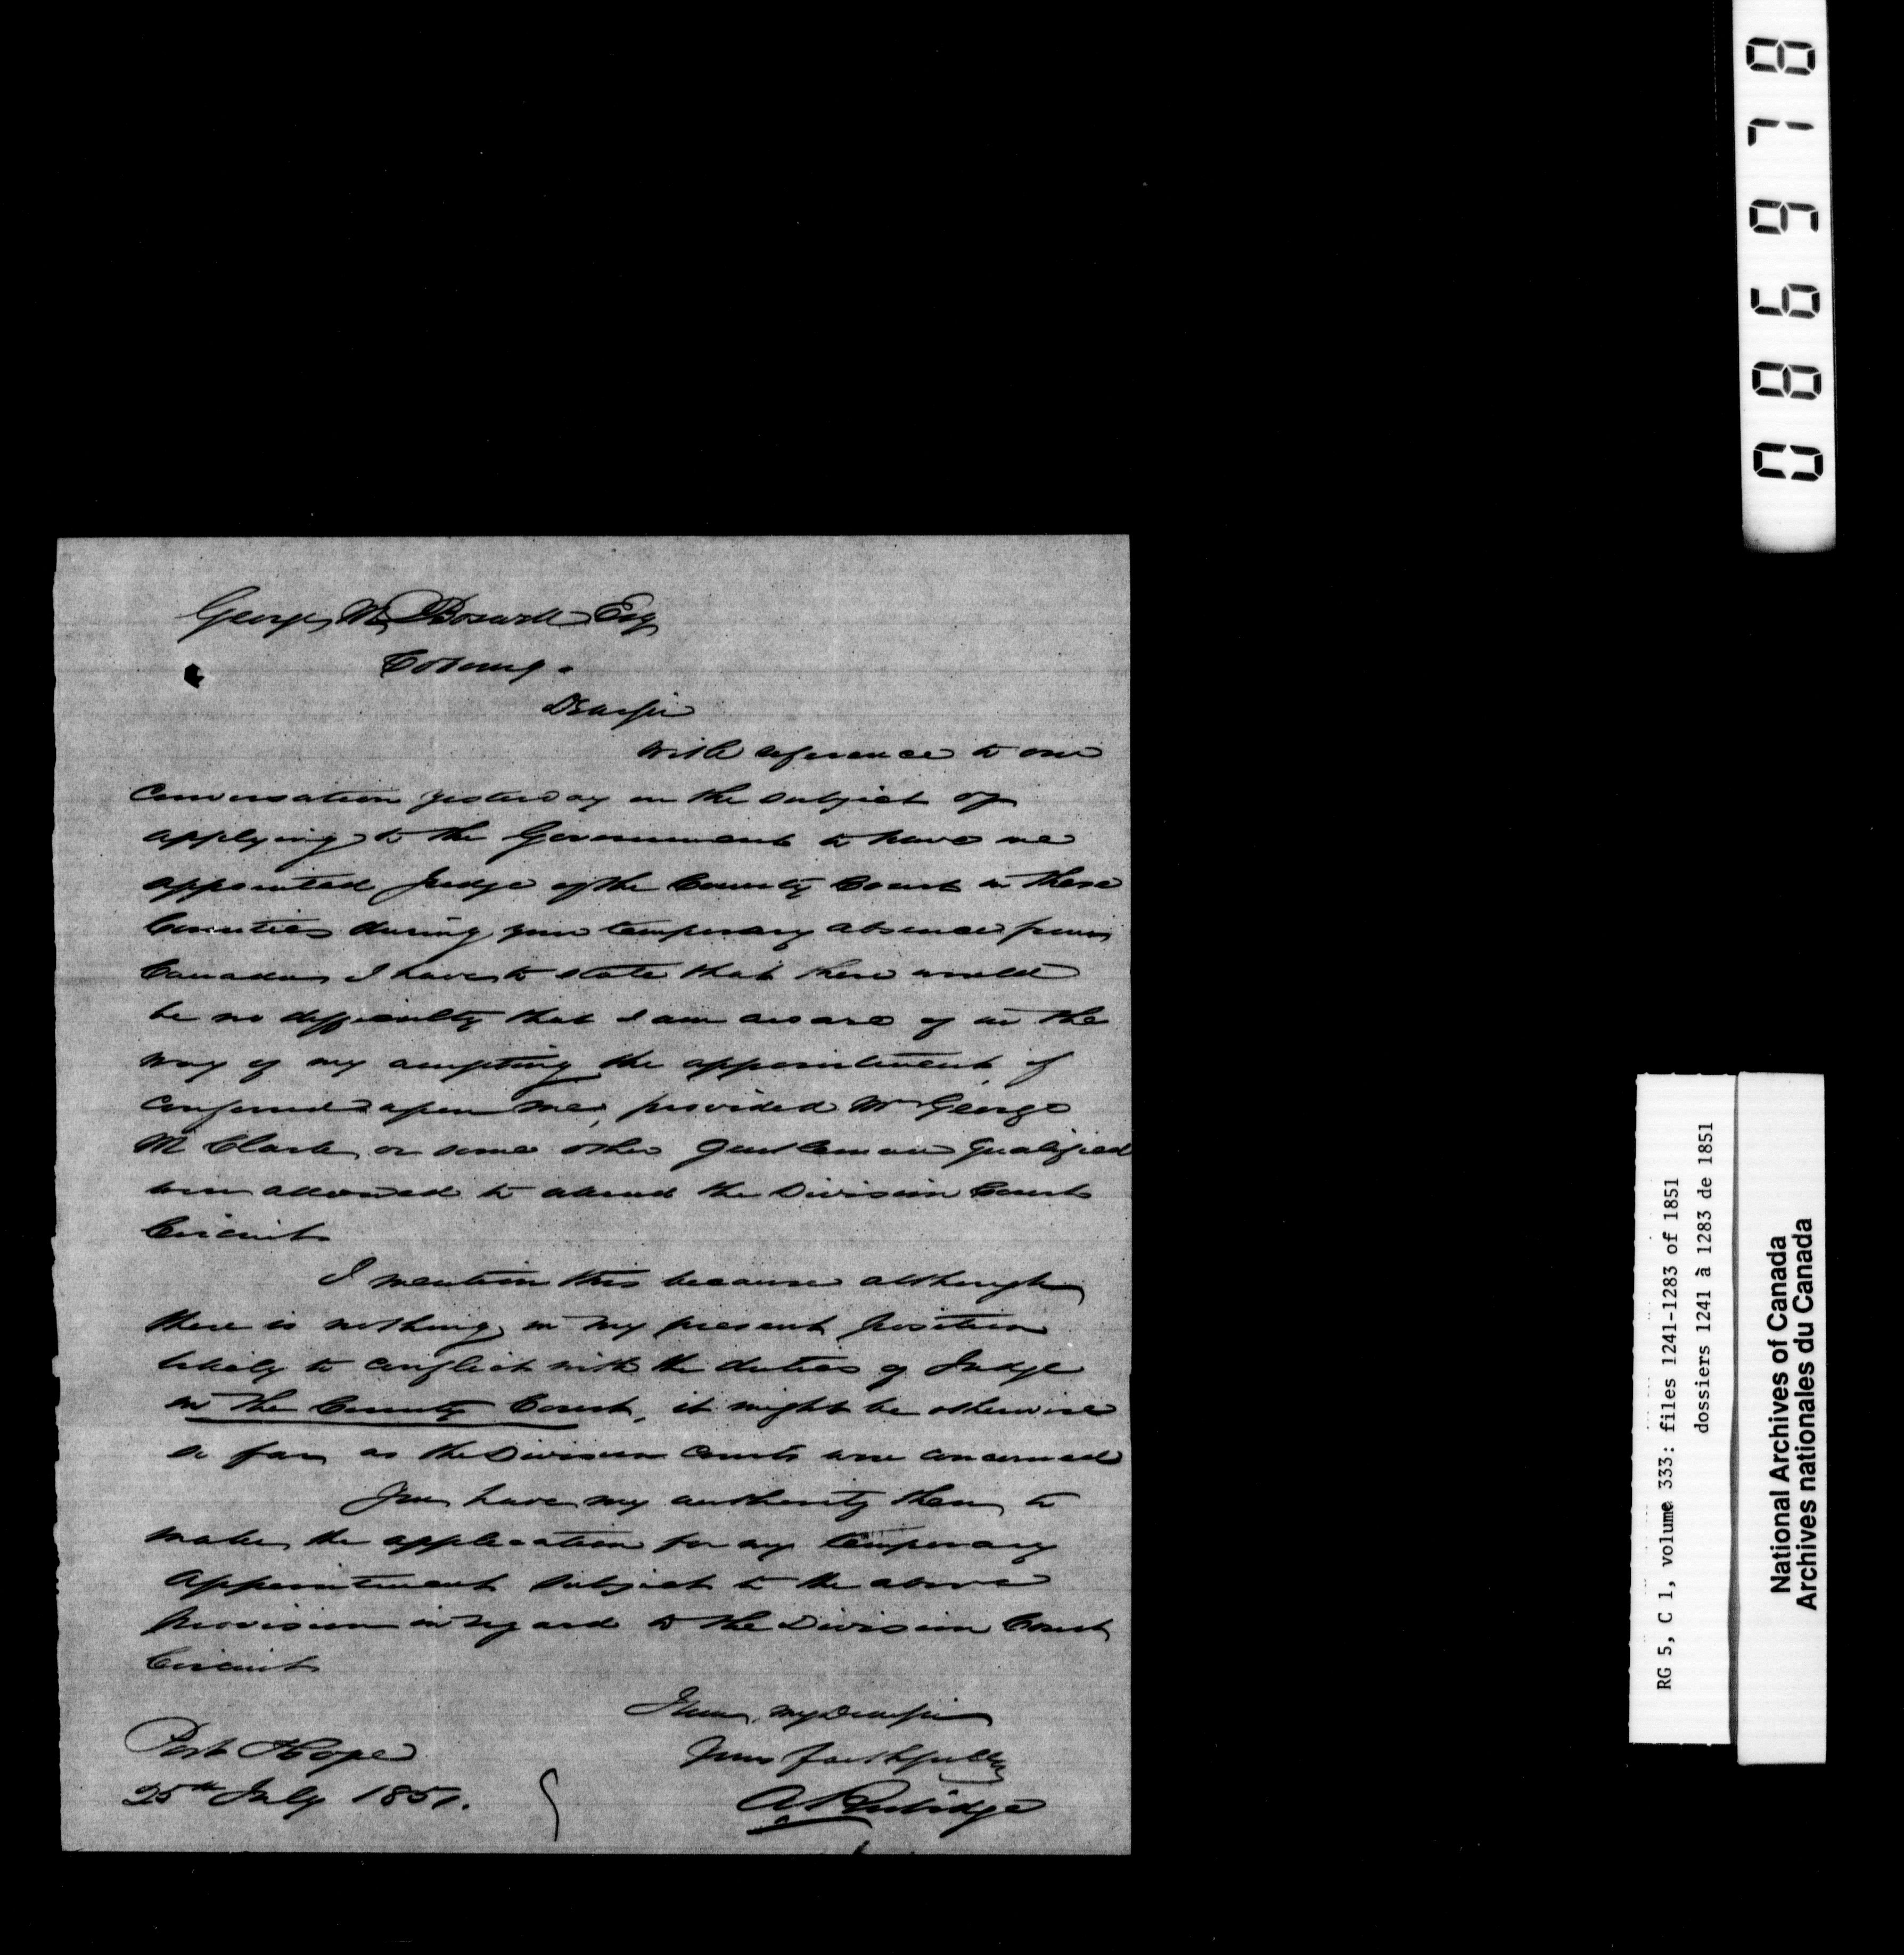 George M Boswell Esq
Cobourg.
Dear Sir
With reference to our
conversation yesterday on the subject of
applying to the Government to have me
appointed Judge of the County Court in these
Counties during your temporary absence from
Canada, I have to state that there would
be no difficulty that I am aware of in the
way of my accepting the appointment, if
conferred upon me, provided Mr George
M Clark or some other Gentleman qualified
were allowed to attend the Division Courts
Circuit
I mention this because although
there is nothing in my present position
likely to conflict with the duties of Judge
in the County Court, it might be otherwise
so far as the Division Courts were concerned
You have my authority then to
make the application for my temporary
appointment subject to the above
provision in regard to the Division Court
Circuit
I am, my Dear Sir
Yours faithfully
A Rubidge
Port Hope
25th July 1851.
086978
RG 5, C 1, volume 333: files 1241-1283 of 1851
dossiers 1241 à 1283 de 1851
National Archives of Canada
Archives nationales du Canada